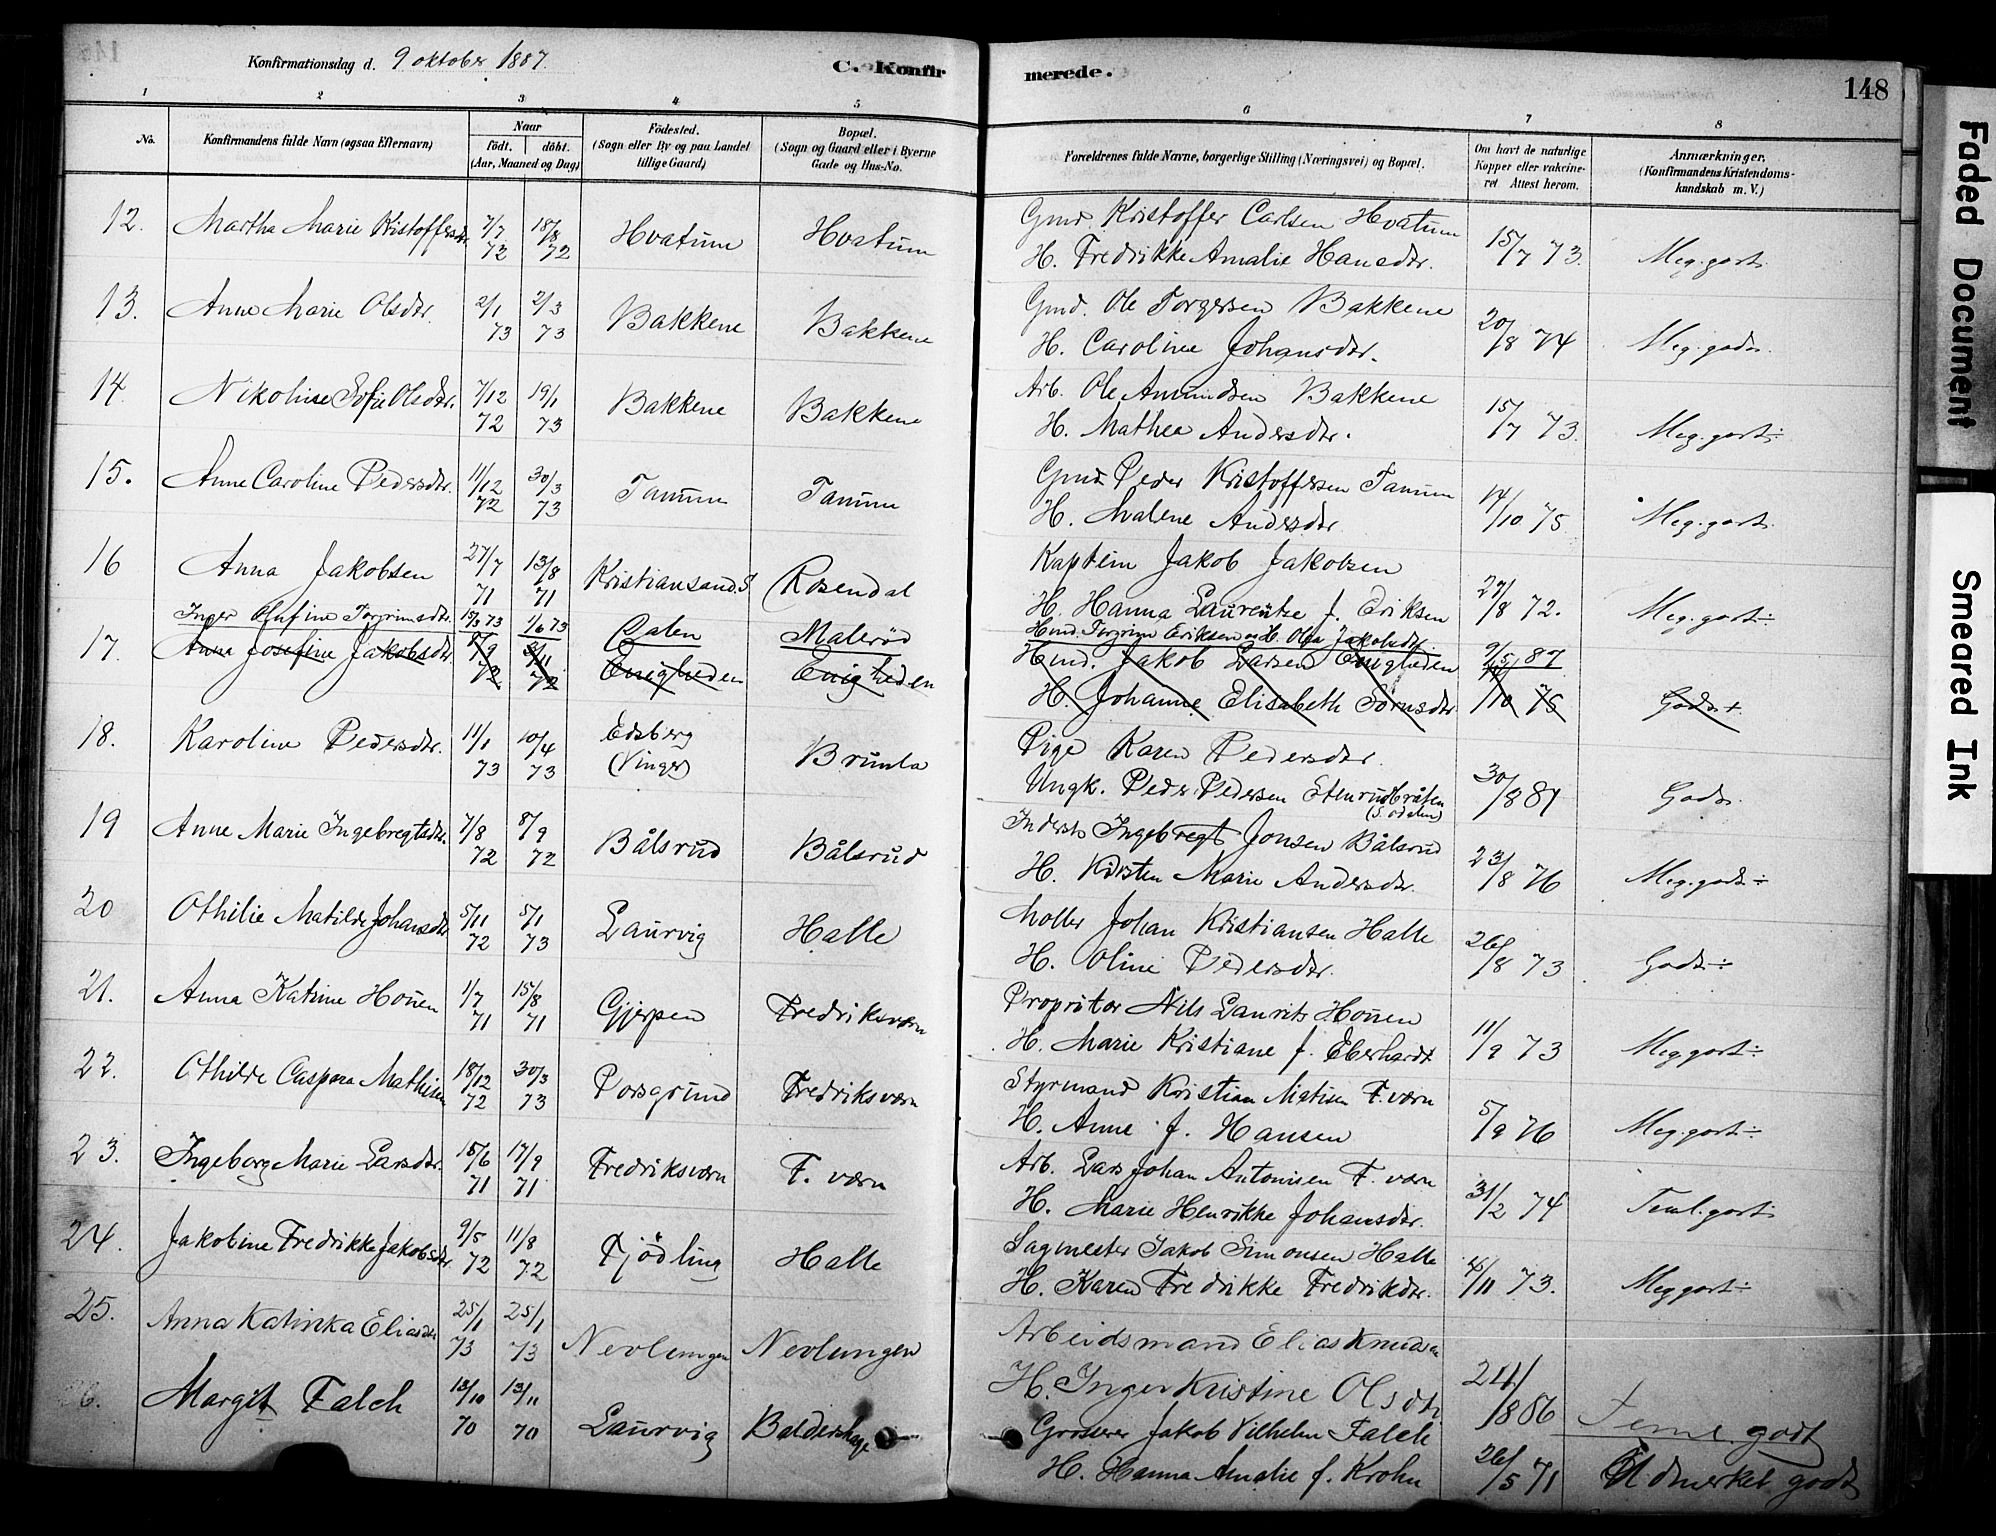 Konfirmationsdag d. 9 oktober 1887.
C. Konfirmerede.
148
1 2 3 4 5 6 7 8
No.
Konfirmandens fulde Navn (ogsaa Efternavn)
Naar
födt. döbt.
(Aar, Maaned og Dag)
Födested.
(Sogn eller By og paa Landet
tillige Gaard)
Bopæl.
(Sogn og Gaard eller i Byerne
Gade og Hus-No.
Forældrenes fulde Navne, borgerlige Stilling (Næringsvei) og Bopæl.
Om havt de naturlige
Kopper eller vakcine-
ret Attest herom.
Anmærkninger.
(Konfirmandens Kristendoms-
kundskab m. V.)
12. Martha Marie Kristoffersdr. 7/7 72 18/8 72 Hvatum Hvatum Gmd. Kristoffer Carlsen Hvatum
H. Fredrikke Amalie Hansdtr. 15/7 73. Meg. godt
13. Anne Marie Olsdtr. 2/1 73 2/3 73 Bakkene Bakkene Gmd. Ole Torgersen Bakkene
H. Caroline Johansdtr. 20/8 74 Meg. godt.
14. Nikoline Sofie Olsdtr. 7/12 72 19/1 73 Bakkene Bakkene Arb. Ole Amundsen Bakkene
H. Mathea Andersdtr. 15/7 73. Meg. godt÷
15. Anne Caroline Pedersdtr. 11/12 72 30/3 73 Tanum Tanum Gmd. Peder Kristoffersen Tanum
H. Malene Andersdtr. 14/10 75 Meg. godt.
16 Anna Jakobsen 27/7 71 13/8 71 Kristiansand S Rosendal Kaptein Jakob Jakobsen
H. Hanna Laurentze f. Eriksen 27/8 72. Meg. godt÷
Inger Olufine Torgrimsdtr. 1/6 73 Malerød Hmd. Torgrim Eriksen og H. Olea Jakobsdtr. 9/5 87
17. Anna Josefine Jakobsdtr. 8/9 72 3/11 72 Enigheden Enigheden Hmd. Jakob Larsen Enigheden
H. Johanne Elisabeth Sørnsdtr /10 75 Godt +
18. Karoline Pedersdtr. 11/1 73 10/4 73 Edsberg
(Vinger) Brunla Pige Karen Pedersdtr.
Ungk. Peder Pedersen Stenrudbråten
(S. odalen) 30/8 87 Godt.
19 Anne Marie Ingebregtsdtr. 7/8 72 8/9 72 Bålsrud Bålsrud Inderst Ingebregt Jonsen Bålsrud
H. Kirsten Marie Andersdtr. 23/8 76 Meg. godt÷
20 Othilie Matilde Johansdtr 5/11 72 5/1 73 Laurvig Halle Møller Johan Kristiansen Halle
H. Oline Pedersdtr. 26/8 73 Godt÷
21. Anna Katrine Houen 1/7 71 15/8 71 Gjerpen Fredriksværn Propritær Nils Laurits Houen
H. Marie Kristiane f. Eberhardt 11/9 73 Meg godt÷
22. Othilde Caspara Mathisen 18/12 72 30/3 73 Porsgrund Fredriksværn Styrmand Kristian Matisen F. værn
H. Anne f. Hansen 5/9 76 Meg. godt÷
23. Ingeborg Marie Larsdtr. 15/6 71 17/9 71 Fredriksværn F. værn Arb. Lars Johan Antonisen F. værn
H. Marie Henrikke Johansdtr. 31/2 74 Teml. godt
24. Jakobine Fredrikke Jakobsdtr 9/5 72 11/8 72 Tjødling Halle Sagmester Jakob Simonsen Halle
H. Karen Fredrikke Fredriksdtr. /11 73. Meg godt÷
25. Anna Katinka Eliasdtr 25/1 73 25/1 73 Nevlungen Nevlungen Arbeidsmand Elias Knudsen
H. Inger Kristine Olsdtr 24/8 86 Teml. godt
26. Margit Falch 13/10 70 13/11 70 Laurvig Baldershage Grosserer Jakob Vilhelm Falch
H. Hanna Amalie f. Krohn 26/5 71 Udmerket godt
Faded Document
Smeared Ink